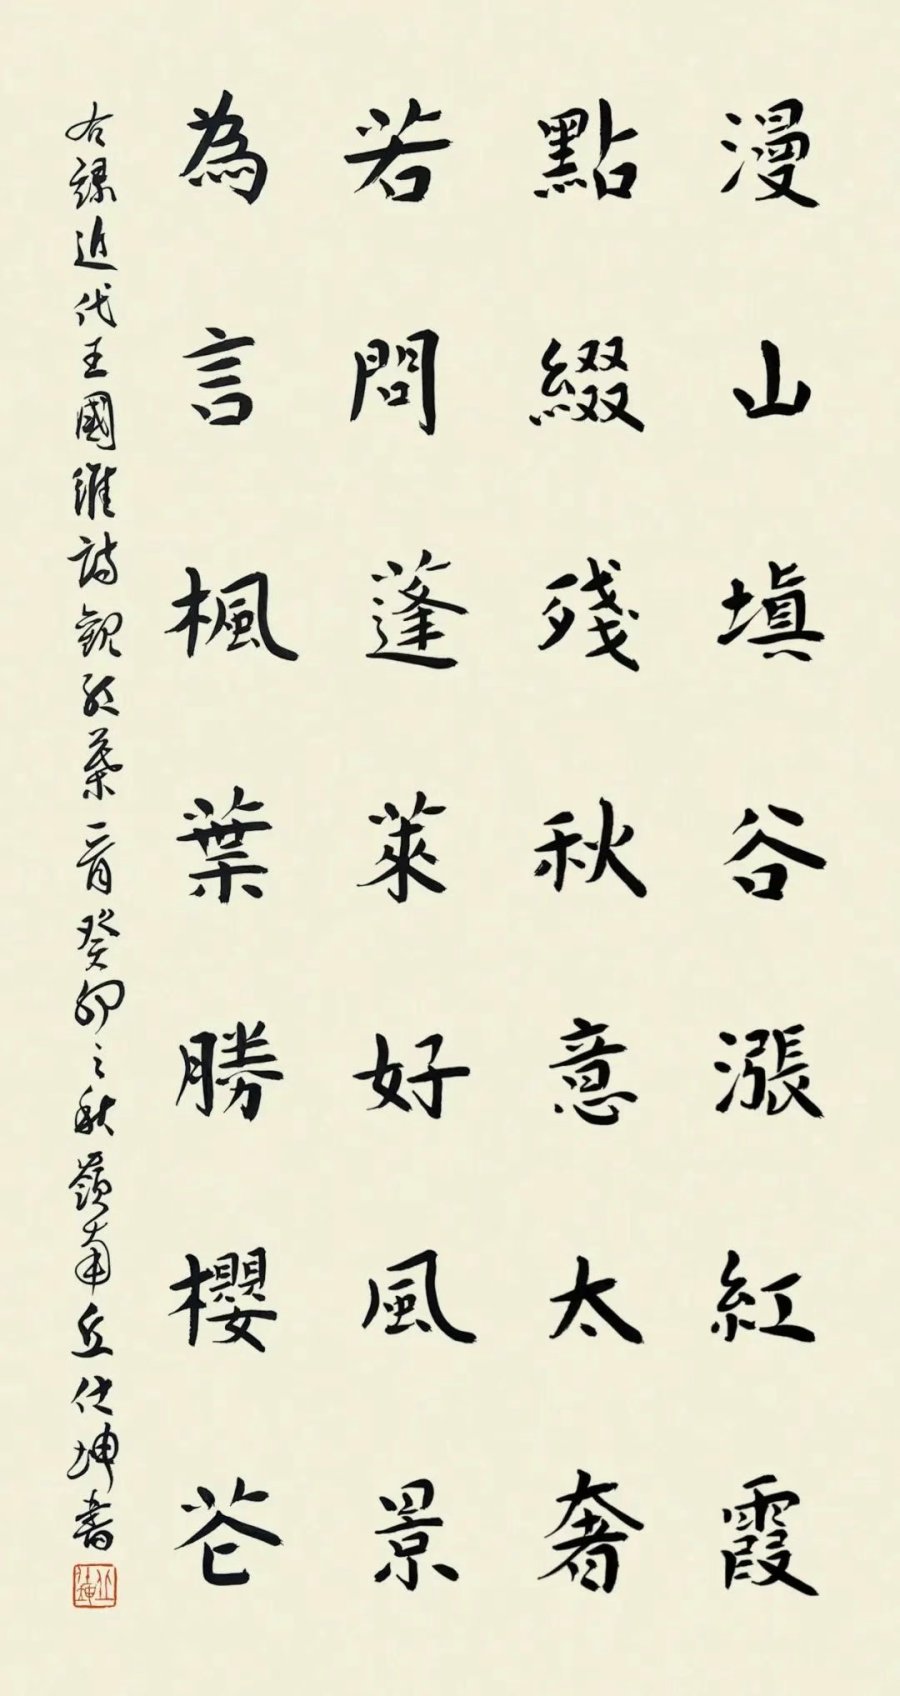 漫山填谷漲紅霞
點綴殘秋意太奢
若問蓬萊好風景
為言楓葉勝櫻花
右錄近代王國維詩觀紅葉一首癸卯之秋嶺南丘仕坤書